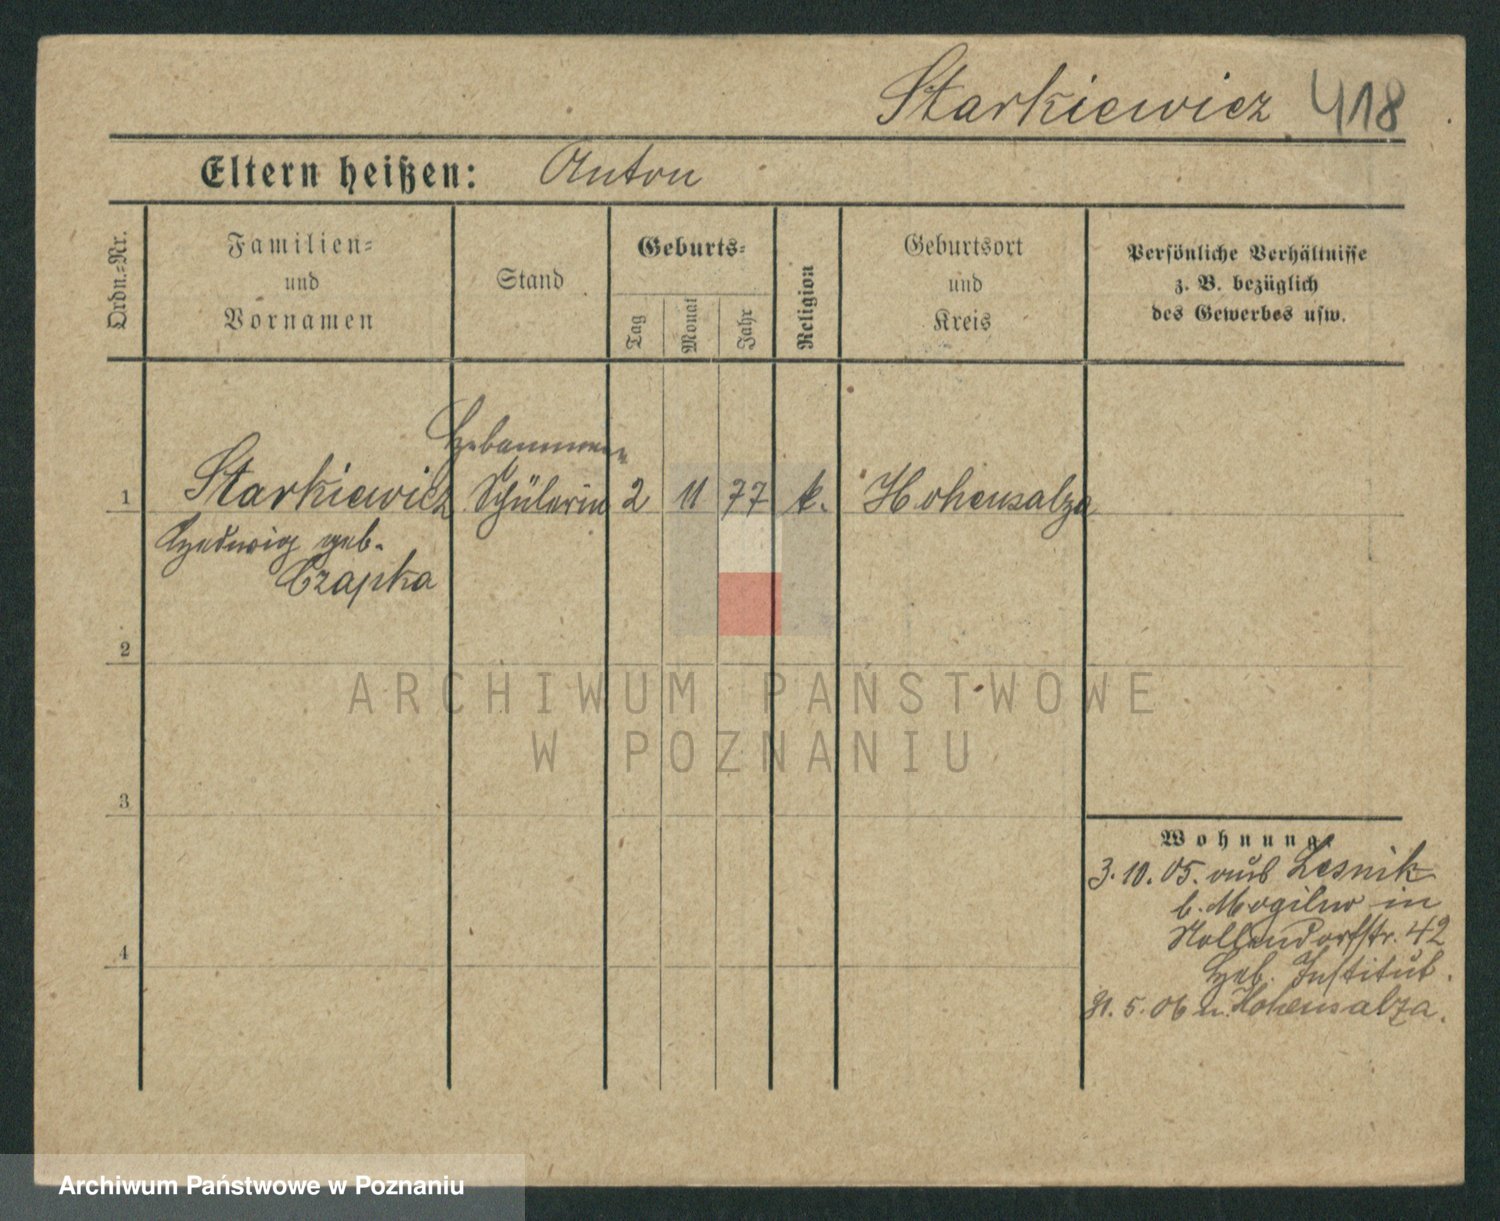 Starkiewicz 418
Eltern heißen: Anton
Ordn.=Nr.
Familien=
und
Vornamen
Stand
Geburts=
Tag
Monat
Jahr
Religion
Geburtsort
und
Kreis
Persönliche Verhältnisse
z. B. bezüglich
des Gewerbes usw.
Hebammen
1 Starkiewicz Schülerin 2 11 77 k. Hohensalza
Hedwig geb.
Czapka
2
ARCHIWUM PAŃSTWOWE
W POZNANIU
3
Wohnung
3.10.05. aus Lesnik
b. Mogilno in
Nollendorfstr. 42
Heb. Institut.
4
5.06 n. Hohensalza.
Archiwum Państwowe w Poznaniu